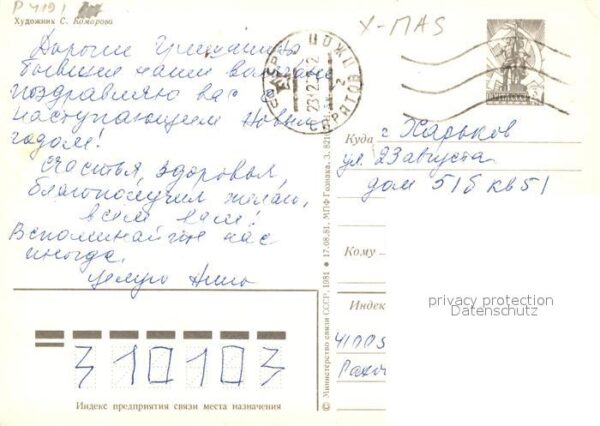 P 4191
Художник С. Комарова
X-MAS
Дорогие
бывшие наши
поздравляю вас с
наступающим Новым
годом!
Счастья, здоровья,
благополучия желаю,
всем вам!
Вспоминайте нас
иногда.
Целую Нина
СССР
23 12
САРАТОВ
Куда г. Харьков
ул. 23 августа
дом 51б кв 51
Кому
Индек
41005
privacy protection
Datenschutz
310103
Индекс предприятия связи места назначения
© Министерство связи СССР, 1981 * 17.08.81. МПФ Гознака. З.